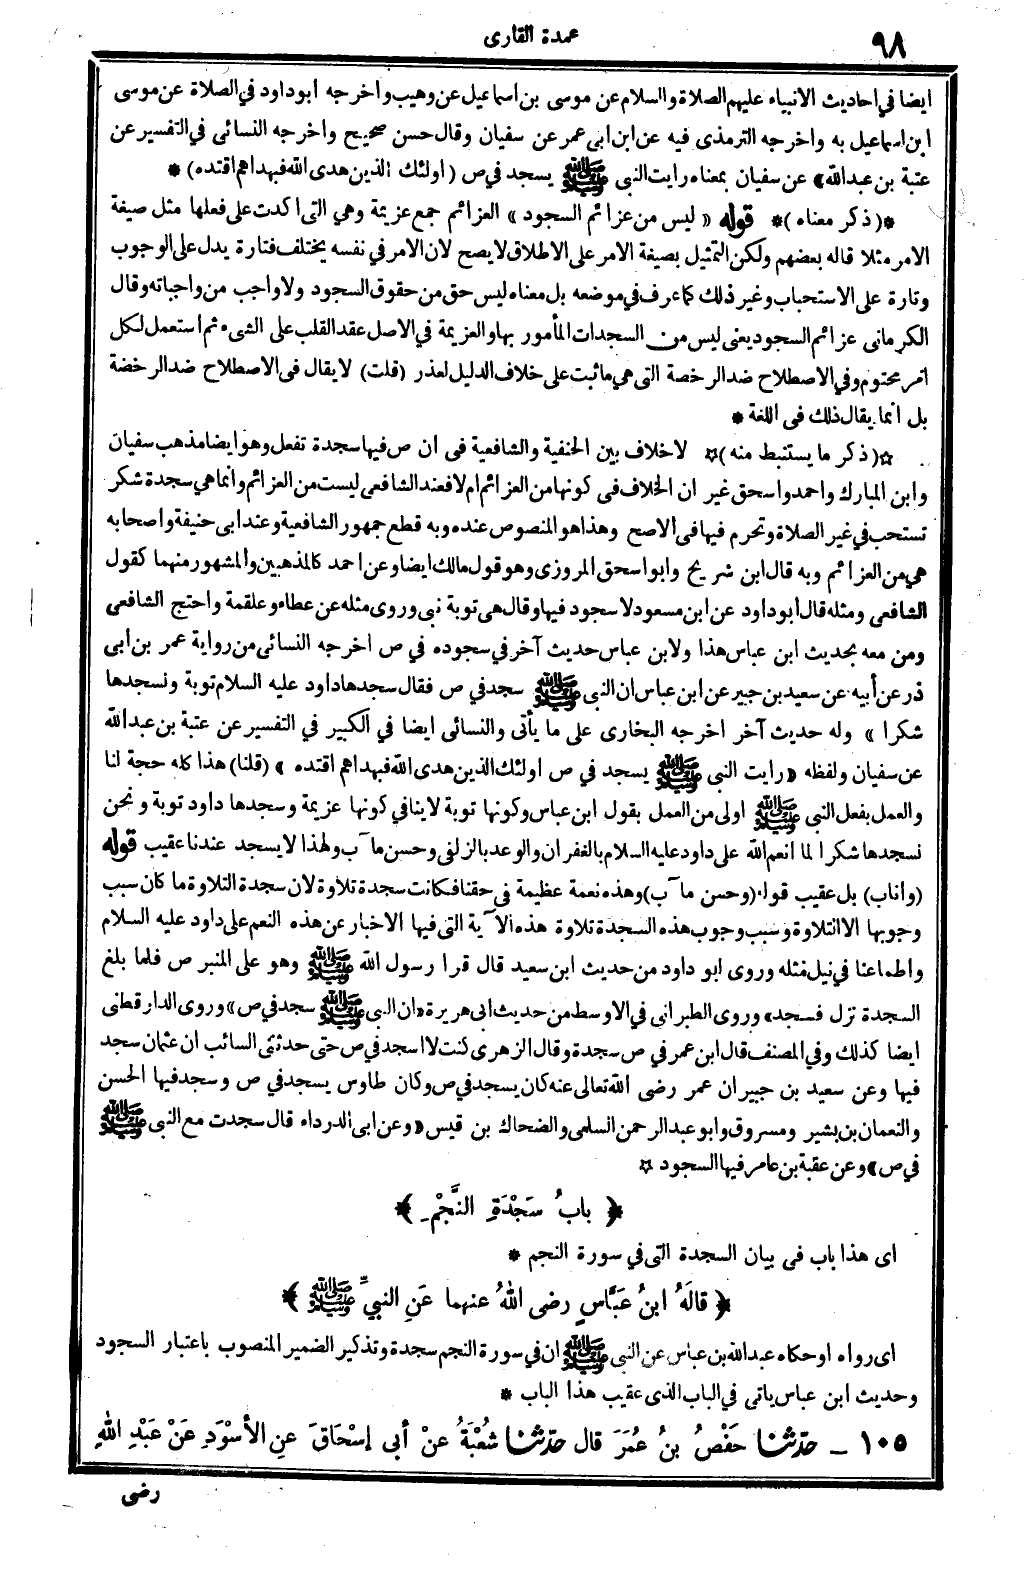 ٩٨
عمدة القارى
ايضا في احاديث الانبياء عليهم الصلاة والسلام عن موسى بن اسماعيل عن وهيب واخرجه ابوداود في الصلاة عن موسى
ابن اسماعيل به واخرجه الترمذى فيه عن ابن ابى عمر عن سفيان وقال حسن صحيح واخرجه النسائى في التفسير عن
عتبة بن عبدالله» عن سفيان بمعناه رايت النبى ﷺ يسجد في ص (اولئك الذين هدى الله فبهداهم اقتده) *
*(ذكر معناه)* قوله «ليس من عزائم السجود» العزائم جمع عزيمة وهي التى اكدت على فعلها مثل صيغة
الامر مثلا قاله بعضهم ولكن التمثيل بصيغة الامر على الاطلاق لا يصح لان الامر في نفسه يختلف فتارة يدل على الوجوب
وتارة على الاستحباب وغير ذلك كما عرف في موضعه بل معناه ليس حق من حقوق السجود ولا واجب من واجباته وقال
الكرمانى عزائم السجود يعنى ليس من السجدات المأمور بها والعزيمة في الاصل عقد القلب على الشيء ثم استعمل لكل
امر محتوم وفي الاصطلاح ضد الرخصة التى هي ما ثبت على خلاف الدليل لعذر (قلت) لا يقال فى الاصطلاح ضد الرخصة
بل انما يقال ذلك فى اللغة *
☆(ذكر ما يستنبط منه)☆ لا خلاف بين الحنفية والشافعية فى ان ص فيها سجدة تفعل وهو ايضا مذهب سفيان
وابن المبارك واحمد واسحق غير ان الخلاف فى كونها من العزائم ام لا فعند الشافعى ليست من العزائم وانما هي سجدة شكر
تستحب في غير الصلاة وتحرم فيها فى الاصح وهذا هو المنصوص عنده وبه قطع جمهور الشافعية وعند ابى حنيفة واصحابه
هي من العزائم وبه قال ابن شريح وابو اسحق المروزى وهو قول مالك ايضا وعن احمد كالمذهبين والمشهور منهما كقول
الشافعى ومثله قال أبو داود عن ابن مسعود لا سجود فيها وقال هى توبة نبى وروى مثله عن عطاء وعلقمة واحتج الشافعى
ومن معه بحديث ابن عباس هذا ولابن عباس حديث آخر في سجوده في ص اخرجه النسائى من رواية عمر بن أبى
ذر عن أبيه عن سعيد بن جبير عن ابن عباس ان النبى ﷺ سجد في ص فقال سجدها داود عليه السلام توبة ونسجدها
شكرا» وله حديث آخر اخرجه البخارى على ما يأتى والنسائى ايضا في الكبير في التفسير عن عتبة بن عبدالله
عن سفيان ولفظه «رايت النبى ﷺ يسجد في ص اولئك الذين هدى الله فبهداهم اقتده» (قلنا) هذا كله حجة لنا
والعمل بفعل النبى ﷺ اولى من العمل بقول ابن عباس وكونها توبة لا ينافي كونها عزيمة وسجدها داود توبة ونحن
نسجدها شكرا لما انعم الله على داود عليه السلام بالغفران والوعد بالزلفى وحسن مآب ولهذا لا يسجد عندنا عقيب قوله
(واناب) بل عقيب قوله (وحسن مآب) وهذه نعمة عظيمة فى حقنا فكانت سجدة تلاوة لان سجدة التلاوة ما كان سبب
وجوبها الا التلاوة وسبب وجوب هذه السجدة تلاوة هذه الآية التى فيها الاخبار عن هذه النعم على داود عليه السلام
واطماعنا في نيل مثله وروى ابو داود من حديث ابن سعيد قال قرا رسول الله ﷺ وهو على المنبر ص فلما بلغ
السجدة نزل فسجد» وروى الطبرانى في الاوسط من حديث ابى هريرة «ان النبى ﷺ سجد في ص» وروى الدارقطنى
ايضا كذلك وفي المصنف قال ابن عمر في ص سجدة وقال الزهرى كنت لا اسجد في ص حتى حدثنى السائب ان عثمان سجد
فيها وعن سعيد بن جبير ان عمر رضى الله تعالى عنه كان يسجد في ص وكان طاوس يسجد في ص وسجد فيها الحسن
والنعمان بن بشير ومسروق وابو عبد الرحمن السلمى والضحاك بن قيس «وعن ابى الدرداء قال سجدت مع النبى ﷺ
في ص» وعن عقبة بن عامر فيها السجود ☆
﴿ بابُ سَجْدَةِ النَّجْمِ ﴾
اى هذا باب فى بيان السجدة التى في سورة النجم *
﴿ قالَهُ ابنُ عَبَّاسٍ رضى اللهُ عنهما عَنِ النبيِّ ﷺ ﴾
اى رواه او حكاه عبدالله بن عباس عن النبى ﷺ ان في سورة النجم سجدة وتذكير الضمير المنصوب باعتبار السجود
وحديث ابن عباس ياتى في الباب الذى عقيب هذا الباب *
١٠٥ ـ حدّثنا حَفْصُ بنُ عُمَرَ قال حدّثنا شُعْبَةُ عنْ أبى إسْحَاقَ عنِ الأسْوَدِ عَنْ عَبْدِ اللهِ
رضى